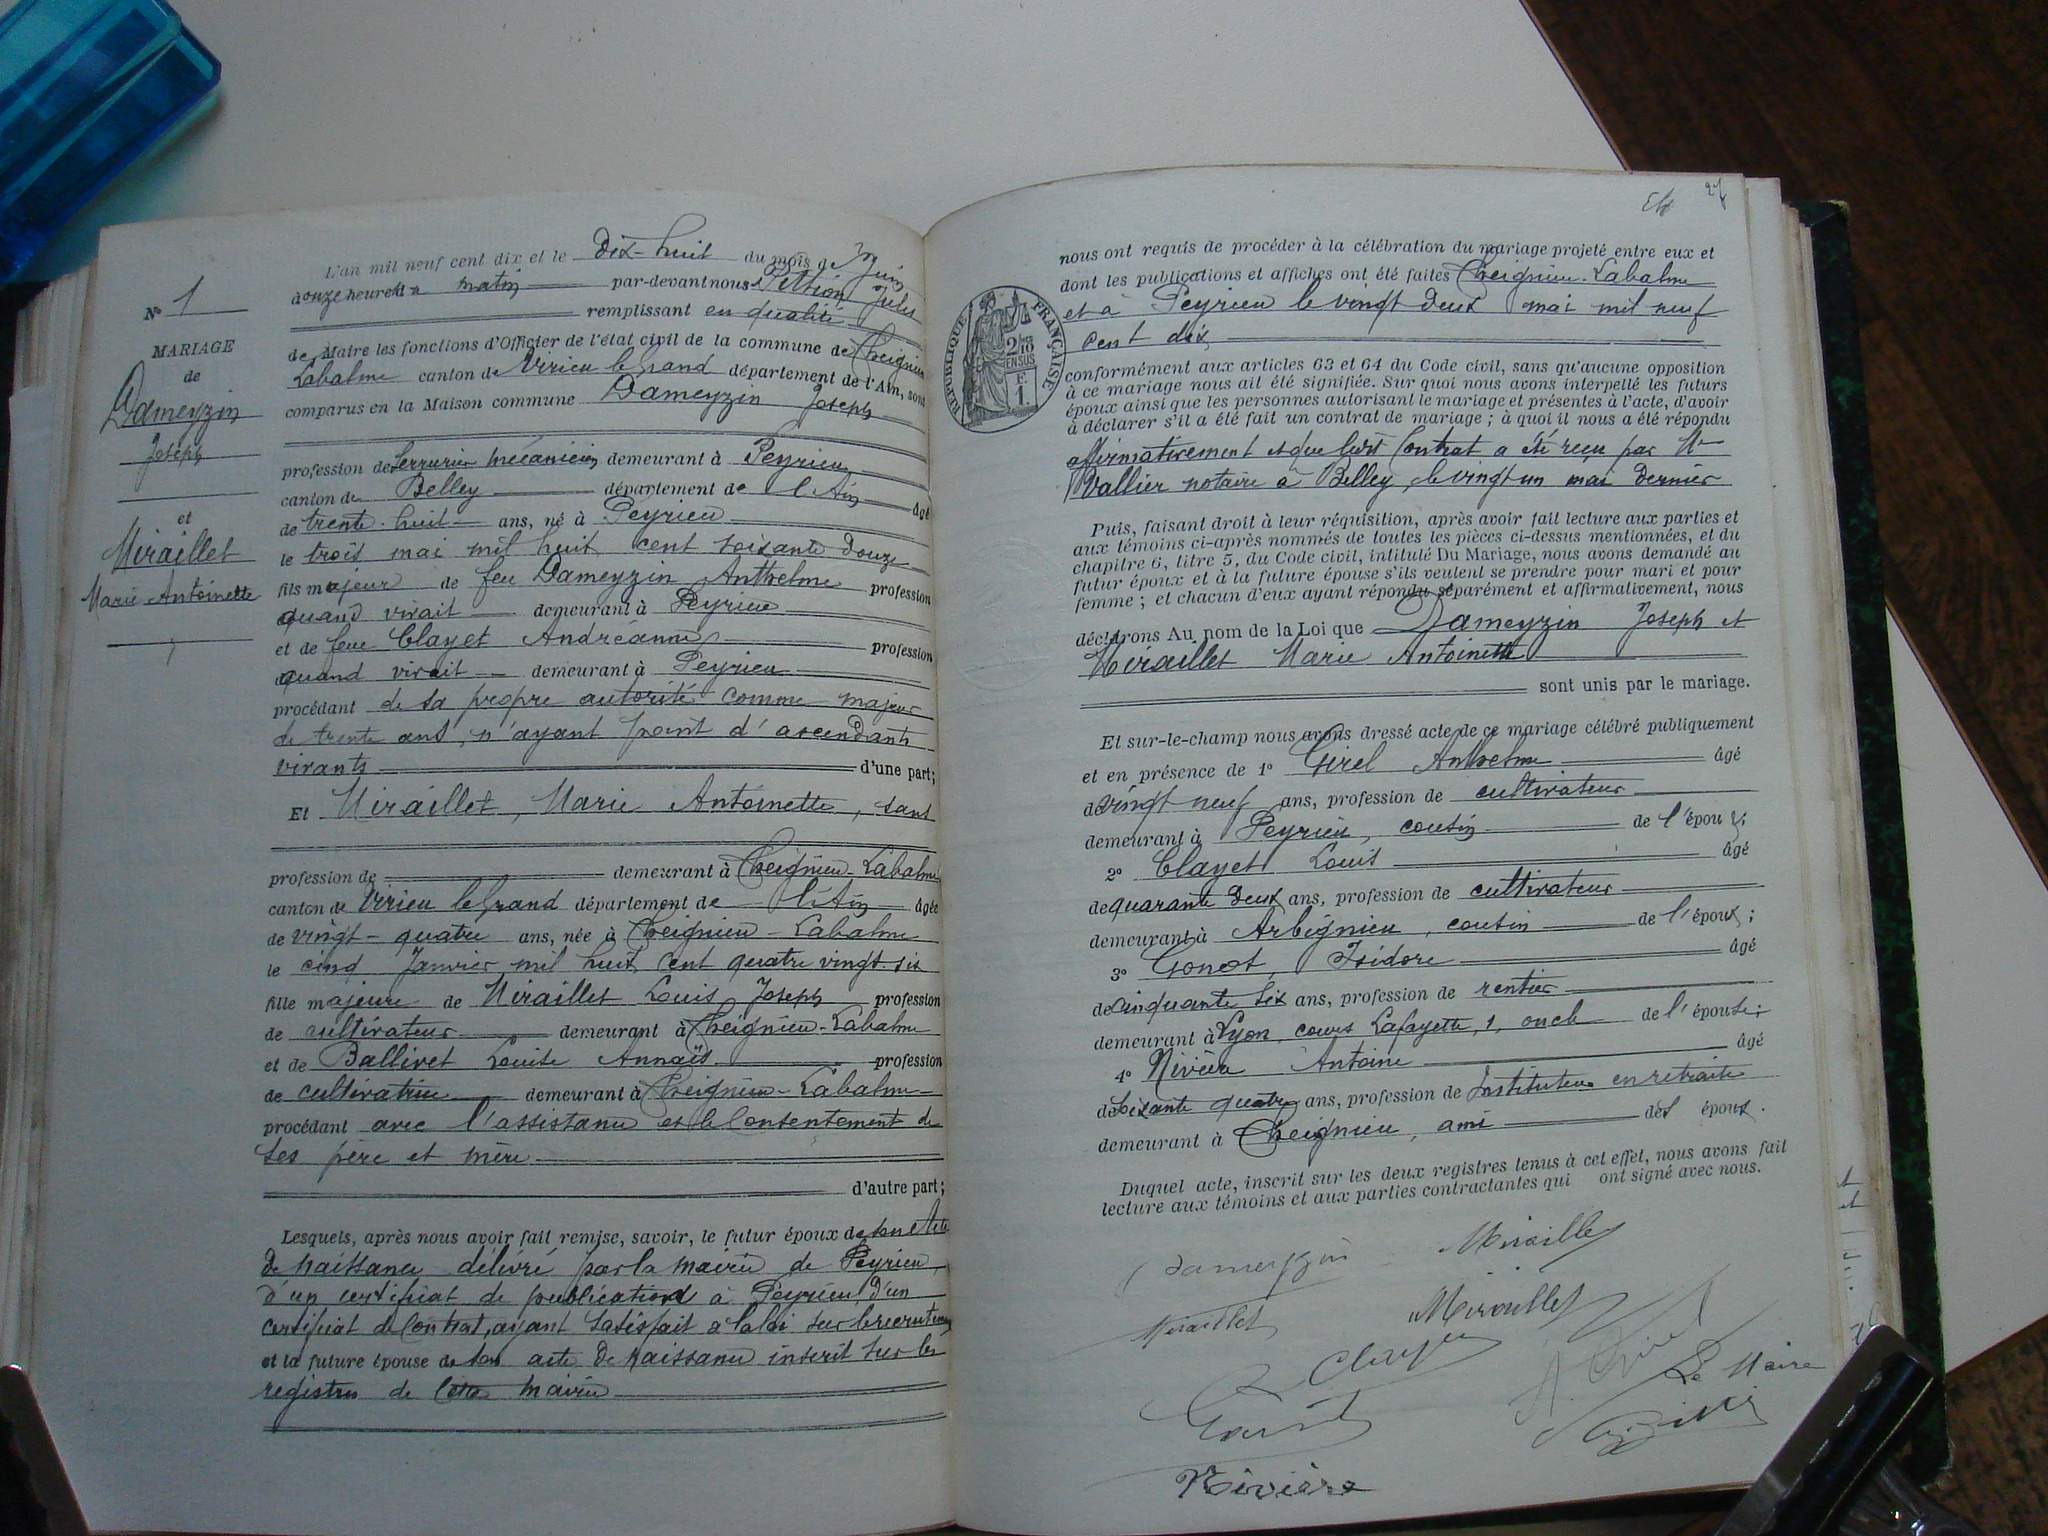 N° 1
MARIAGE
de
Dameyzin
Joseph
et
Miraillet
Marie Antoinette
L'an mil neuf cent dix et le Dix-huit du mois de Juin
à onze heures du matin par-devant nous Jules
remplissant en qualité
de Maire les fonctions d'Officier de l'état civil de la commune de Cheignieu
Labalme canton de Virieu le Grand département de l'Ain, sont
comparus en la Maison commune Dameyzin Joseph
profession de Serrurier mécanicien demeurant à Peyrieu
canton de Belley département de l'Ain âgé
de trente-huit ans, né à Peyrieu
le trois mai mil huit cent soixante douze
fils majeur de feu Dameyzin Anthelme profession
quand vivait demeurant à Peyrieu
et de feue Clayet Andréanne profession
quand vivait demeurant à Peyrieu
procédant de sa propre autorité comme majeur
de trente ans, n'ayant point d'ascendants
vivants d'une part;
Et Miraillet, Marie Antoinette, sans
profession de demeurant à Cheignieu-Labalme
canton de Virieu le Grand département de l'Ain âgée
de vingt-quatre ans, née à Cheignieu-Labalme
le cinq Janvier mil huit cent quatre vingt six
fille majeure de Miraillet Louis Joseph profession
de cultivateur demeurant à Cheignieu-Labalme
et de Ballivet Louise Annaïs profession
de cultivatrice demeurant à Cheignieu-Labalme
procédant avec l'assistance et le Consentement de
ses père et mère
d'autre part;
Lesquels, après nous avoir fait remise, savoir, le futur époux de son acte
de Naissance délivré par la mairie de Peyrieu,
d'un certificat de publication à Peyrieu, d'un
certificat de Contrat, ayant satisfait à la loi sur le recrutement
et la future épouse de son acte de Naissance inscrit sur les
registres de Cette Mairie
27
nous ont requis de procéder à la célébration du mariage projeté entre eux et
dont les publications et affiches ont été faites Cheignieu-Labalme
et à Peyrieu le vingt deux mai mil neuf
cent dix
RÉPUBLIQUE FRANÇAISE
2/10 EN SUS
F.
1.
conformément aux articles 63 et 64 du Code civil, sans qu'aucune opposition
à ce mariage nous ait été signifiée. Sur quoi nous avons interpellé les futurs
époux ainsi que les personnes autorisant le mariage et présentes à l'acte, d'avoir
à déclarer s'il a été fait un contrat de mariage; à quoi il nous a été répondu
affirmativement et que ledit Contrat a été reçu par Me
Vallier notaire à Belley, le vingt un mai dernier
Puis, faisant droit à leur réquisition, après avoir fait lecture aux parties et
aux témoins ci-après nommés de toutes les pièces ci-dessus mentionnées, et du
chapitre 6, litre 5, du Code civil, intitulé Du Mariage, nous avons demandé au
futur époux et à la future épouse s'ils veulent se prendre pour mari et pour
femme; et chacun d'eux ayant répondu séparément et affirmativement, nous
déclarons Au nom de la Loi que Dameyzin Joseph et
Miraillet Marie Antoinette
sont unis par le mariage.
Et sur-le-champ nous avons dressé acte de ce mariage célébré publiquement
et en présence de 1° Girel Anthelme âgé
de vingt neuf ans, profession de cultivateur
demeurant à Peyrieu, cousin de l'époux;
2° Clayet Louis âgé
de quarante deux ans, profession de cultivateur
demeurant à Arbignieu, cousin de l'époux;
3° Gonot, Isidore âgé
de cinquante six ans, profession de rentier
demeurant à Lyon, cours Lafayette, 1, oncle de l'épouse;
4° Rivière Antoine âgé
de soixante quatre ans, profession de Instituteur en retraite
demeurant à Cheignieu, ami des époux.
Duquel acte, inscrit sur les deux registres tenus à cet effet, nous avons fait
lecture aux témoins et aux parties contractantes qui ont signé avec nous.
Dameyzin Miraillet
Miraillet Miraillet
Clayet
Le Maire
Rivière